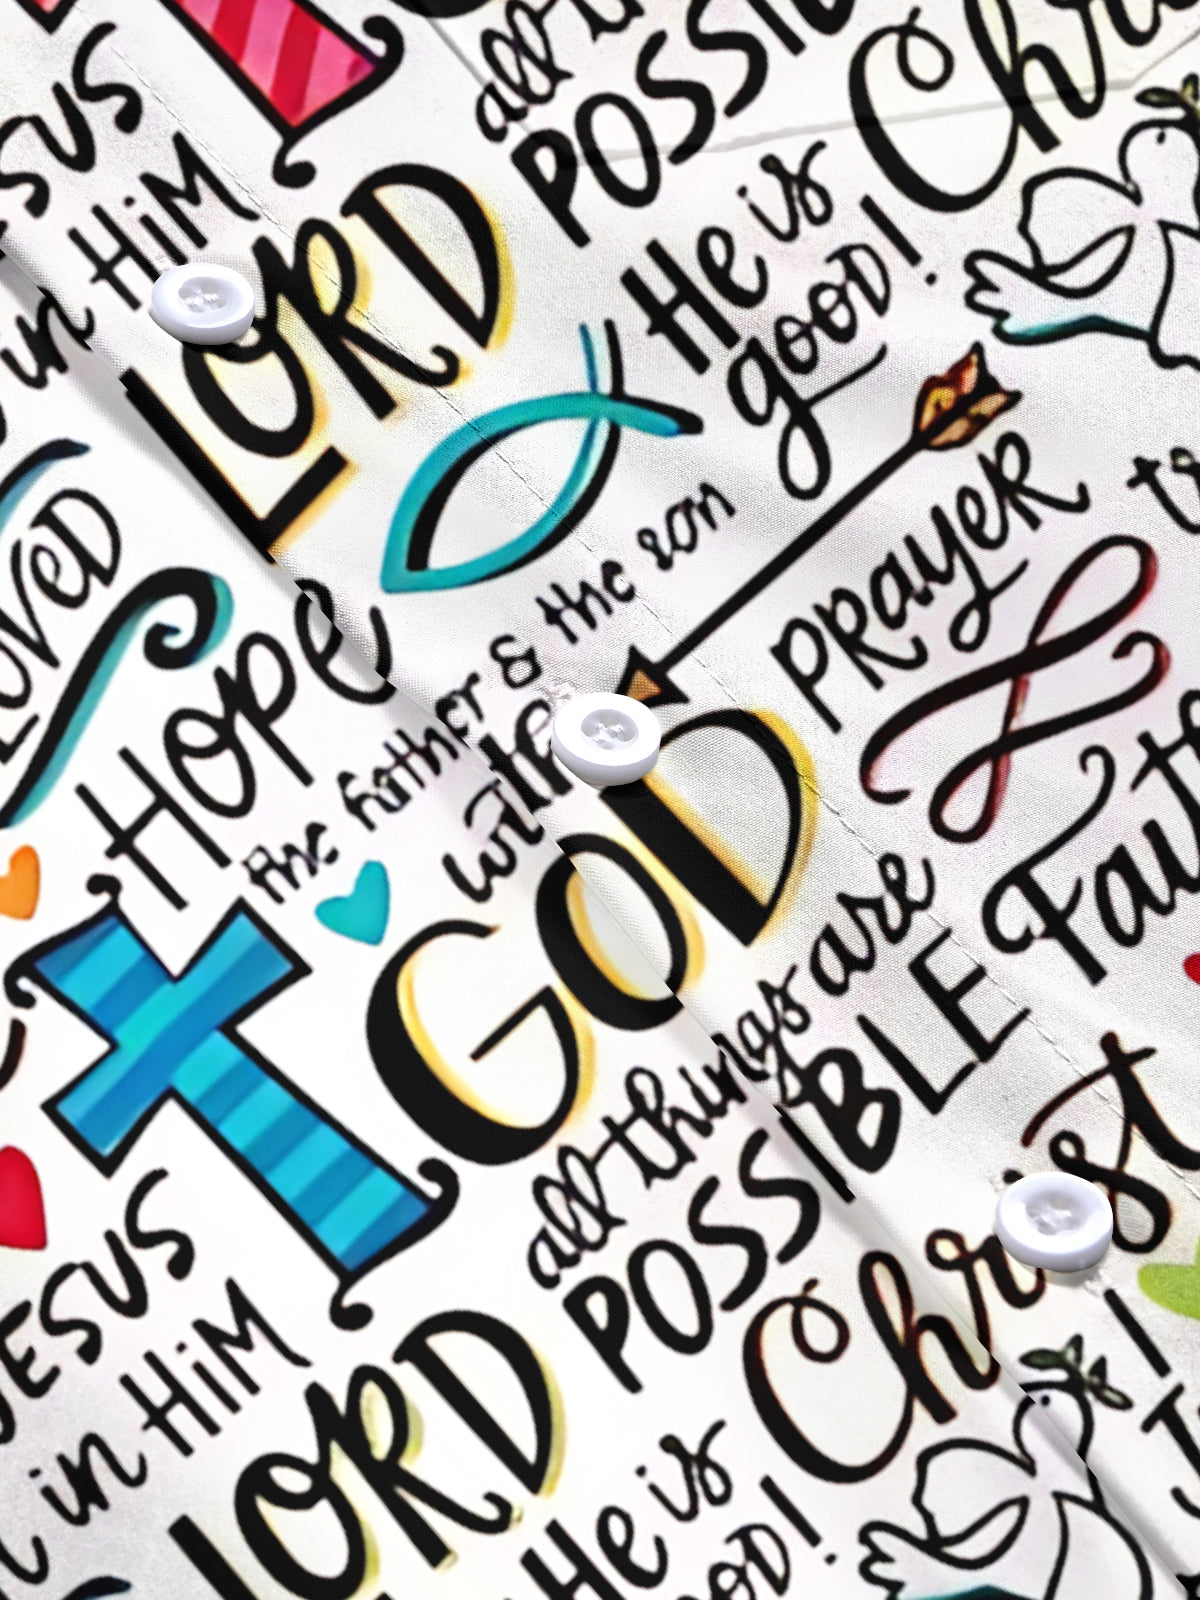 JESUS
in HiM
LORD
all
POSSI
Chr
He is
gooD!
LOVeD
Hope
the father & the son
with
GOD
PRayeR
Faith
all things are
POSSIBLE
Christ
JESUS
in HiM
LORD
He is
gooD!